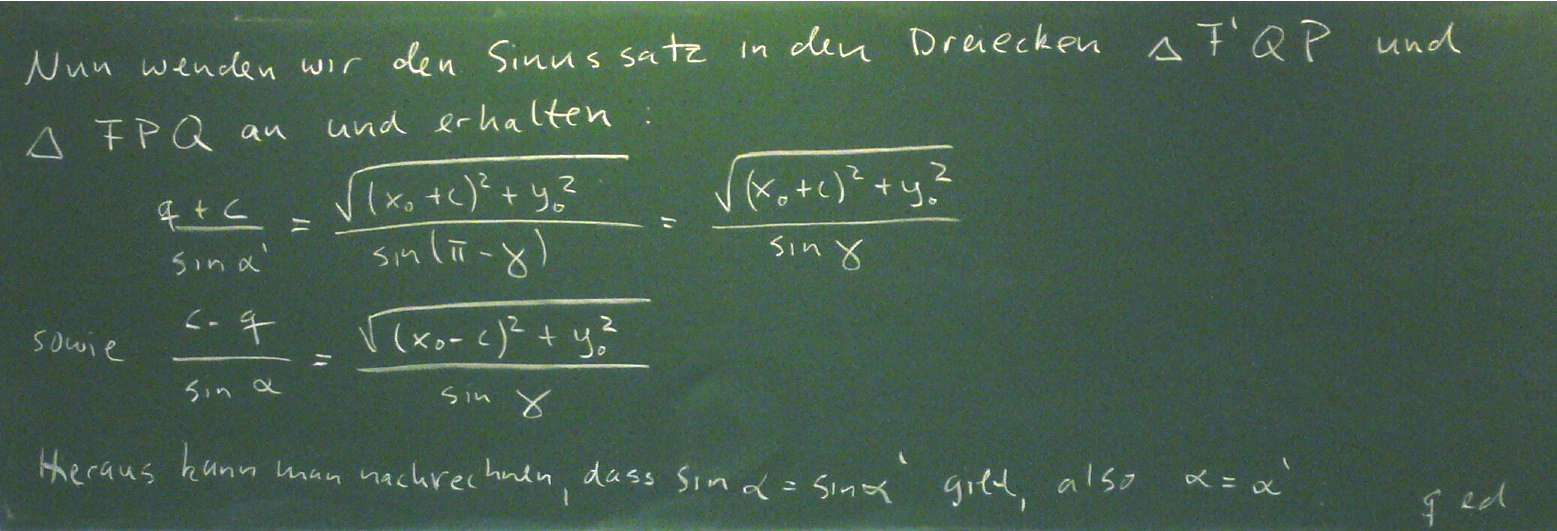 Nun wenden wir den Sinussatz in den Dreiecken △ F'QP und
△ FPQ an und erhalten:
(q + c)/(sin α') = √((x₀+c)² + y₀²)/(sin(π-γ)) = √((x₀+c)² + y₀²)/(sin γ)
sowie (c - q)/(sin α) = √((x₀-c)² + y₀²)/(sin γ)
Hieraus kann man nachrechnen, dass sin α = sin α' gilt, also α = α'.
qed